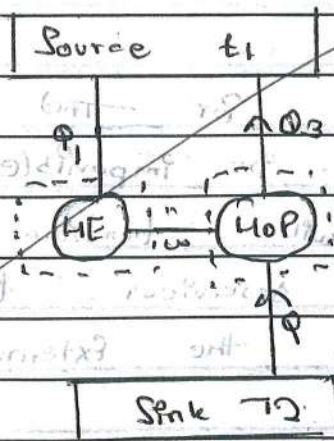 Source t1
Q1 Q3
HE w HOP
Q
Sink T2